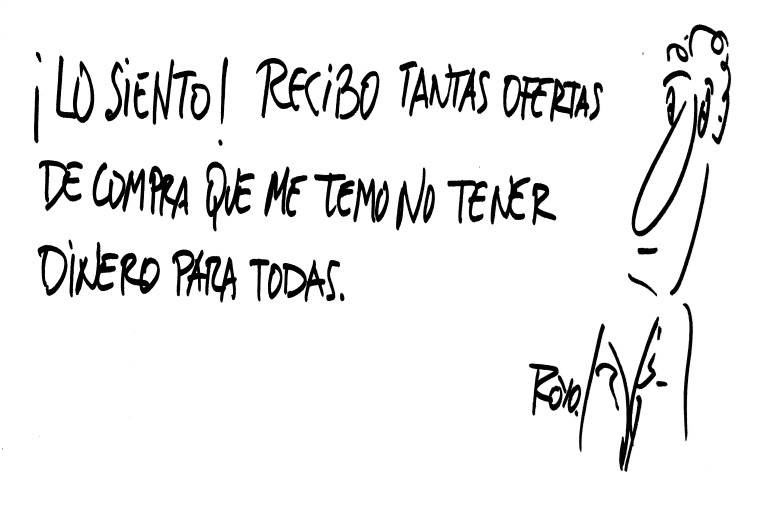 ¡LO SIENTO! RECIBO TANTAS OFERTAS
DE COMPRA QUE ME TEMO NO TENER
DINERO PARA TODAS.
ROYO.